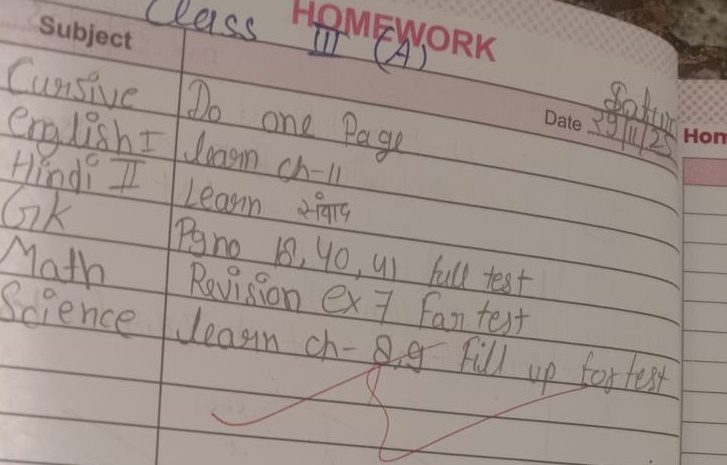 Class III (A)
HOMEWORK
Subject
Date 29/11/25
Hom
Cursive Do one Page
English I learn ch-11
Hindi II Learn संवाद
GK Pg no 18, 40, 41 full test
Math Revision ex 7 For test
Science learn ch-8,9 fill up for test